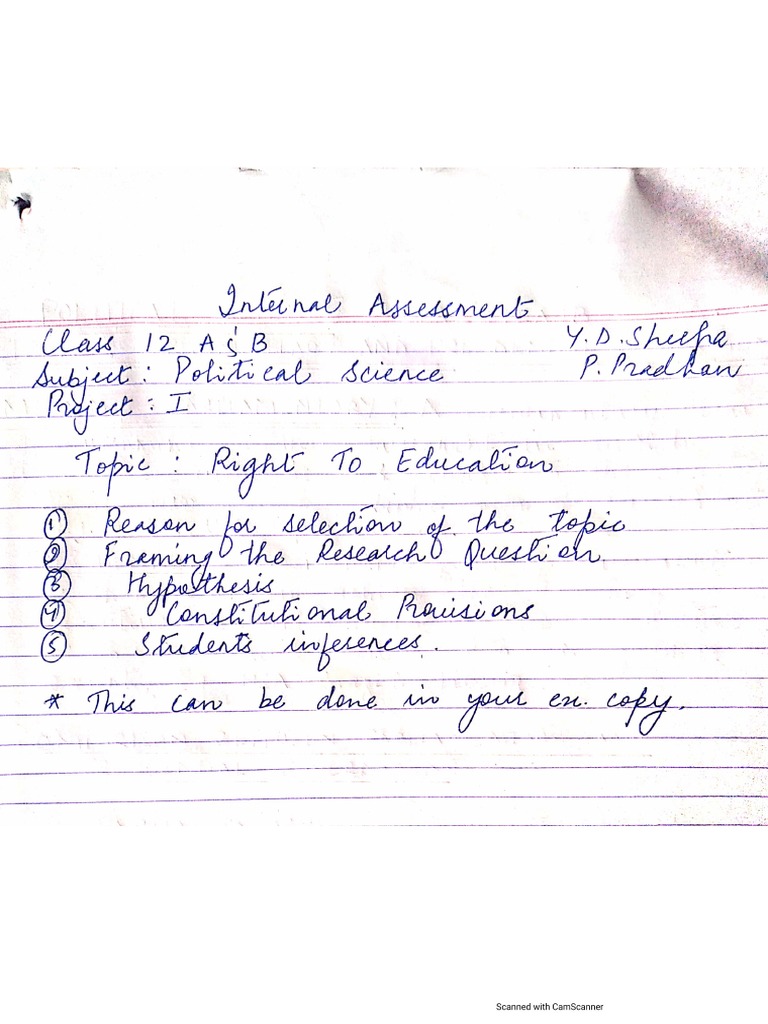 Internal Assessment
Class 12 A & B Y. D. Sherpa
Subject: Political Science P. Pradhan
Project: I
Topic: Right To Education
① Reason for selection of the topic
② Framing the Research Question.
③ Hypothesis
④ Constitutional Provisions
⑤ Students inferences.
* This can be done in your ex. copy.
Scanned with CamScanner